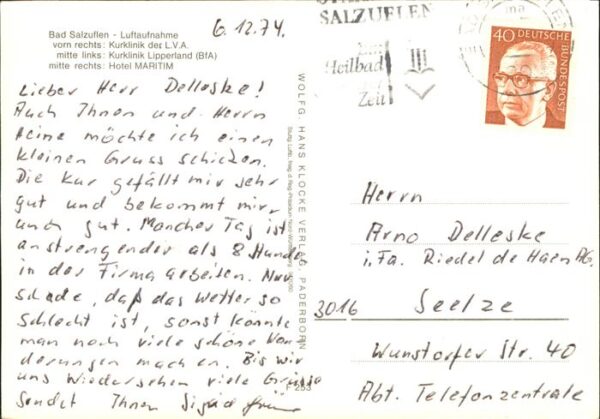 Bad Salzuflen - Luftaufnahme
vorn rechts: Kurklinik der L.V.A.
mitte links: Kurklinik Lipperland (BfA)
mitte rechts: Hotel MARITIM
6.12.74.
Lieber Herr Delleske!
Auch Ihnen und Herrn
Heine möchte ich einen
kleinen Gruss schicken.
Die Kur gefällt mir sehr
gut und bekommt mir
auch gut. Mancher Tag ist
anstrengender als 8 Stunden
in der Firma arbeiten. Nur
schade, daß das Wetter so
schlecht ist, sonst könnte
man noch viele schöne Wan
derungen machen. Bis wir
uns Wiedersehen viele Grüsse
sendet Ihnen
WOLFG. HANS KLOCKE VERLAG, PADERBORN
253
SALZUFLEN
Heilbad
Zeit
40
DEUTSCHE
BUNDESPOST
Herrn
Arno Delleske
i.Fa. Riedel de Haen AG.
3016 Seelze
Wunstorfer Str. 40
Abt. Telefonzentrale